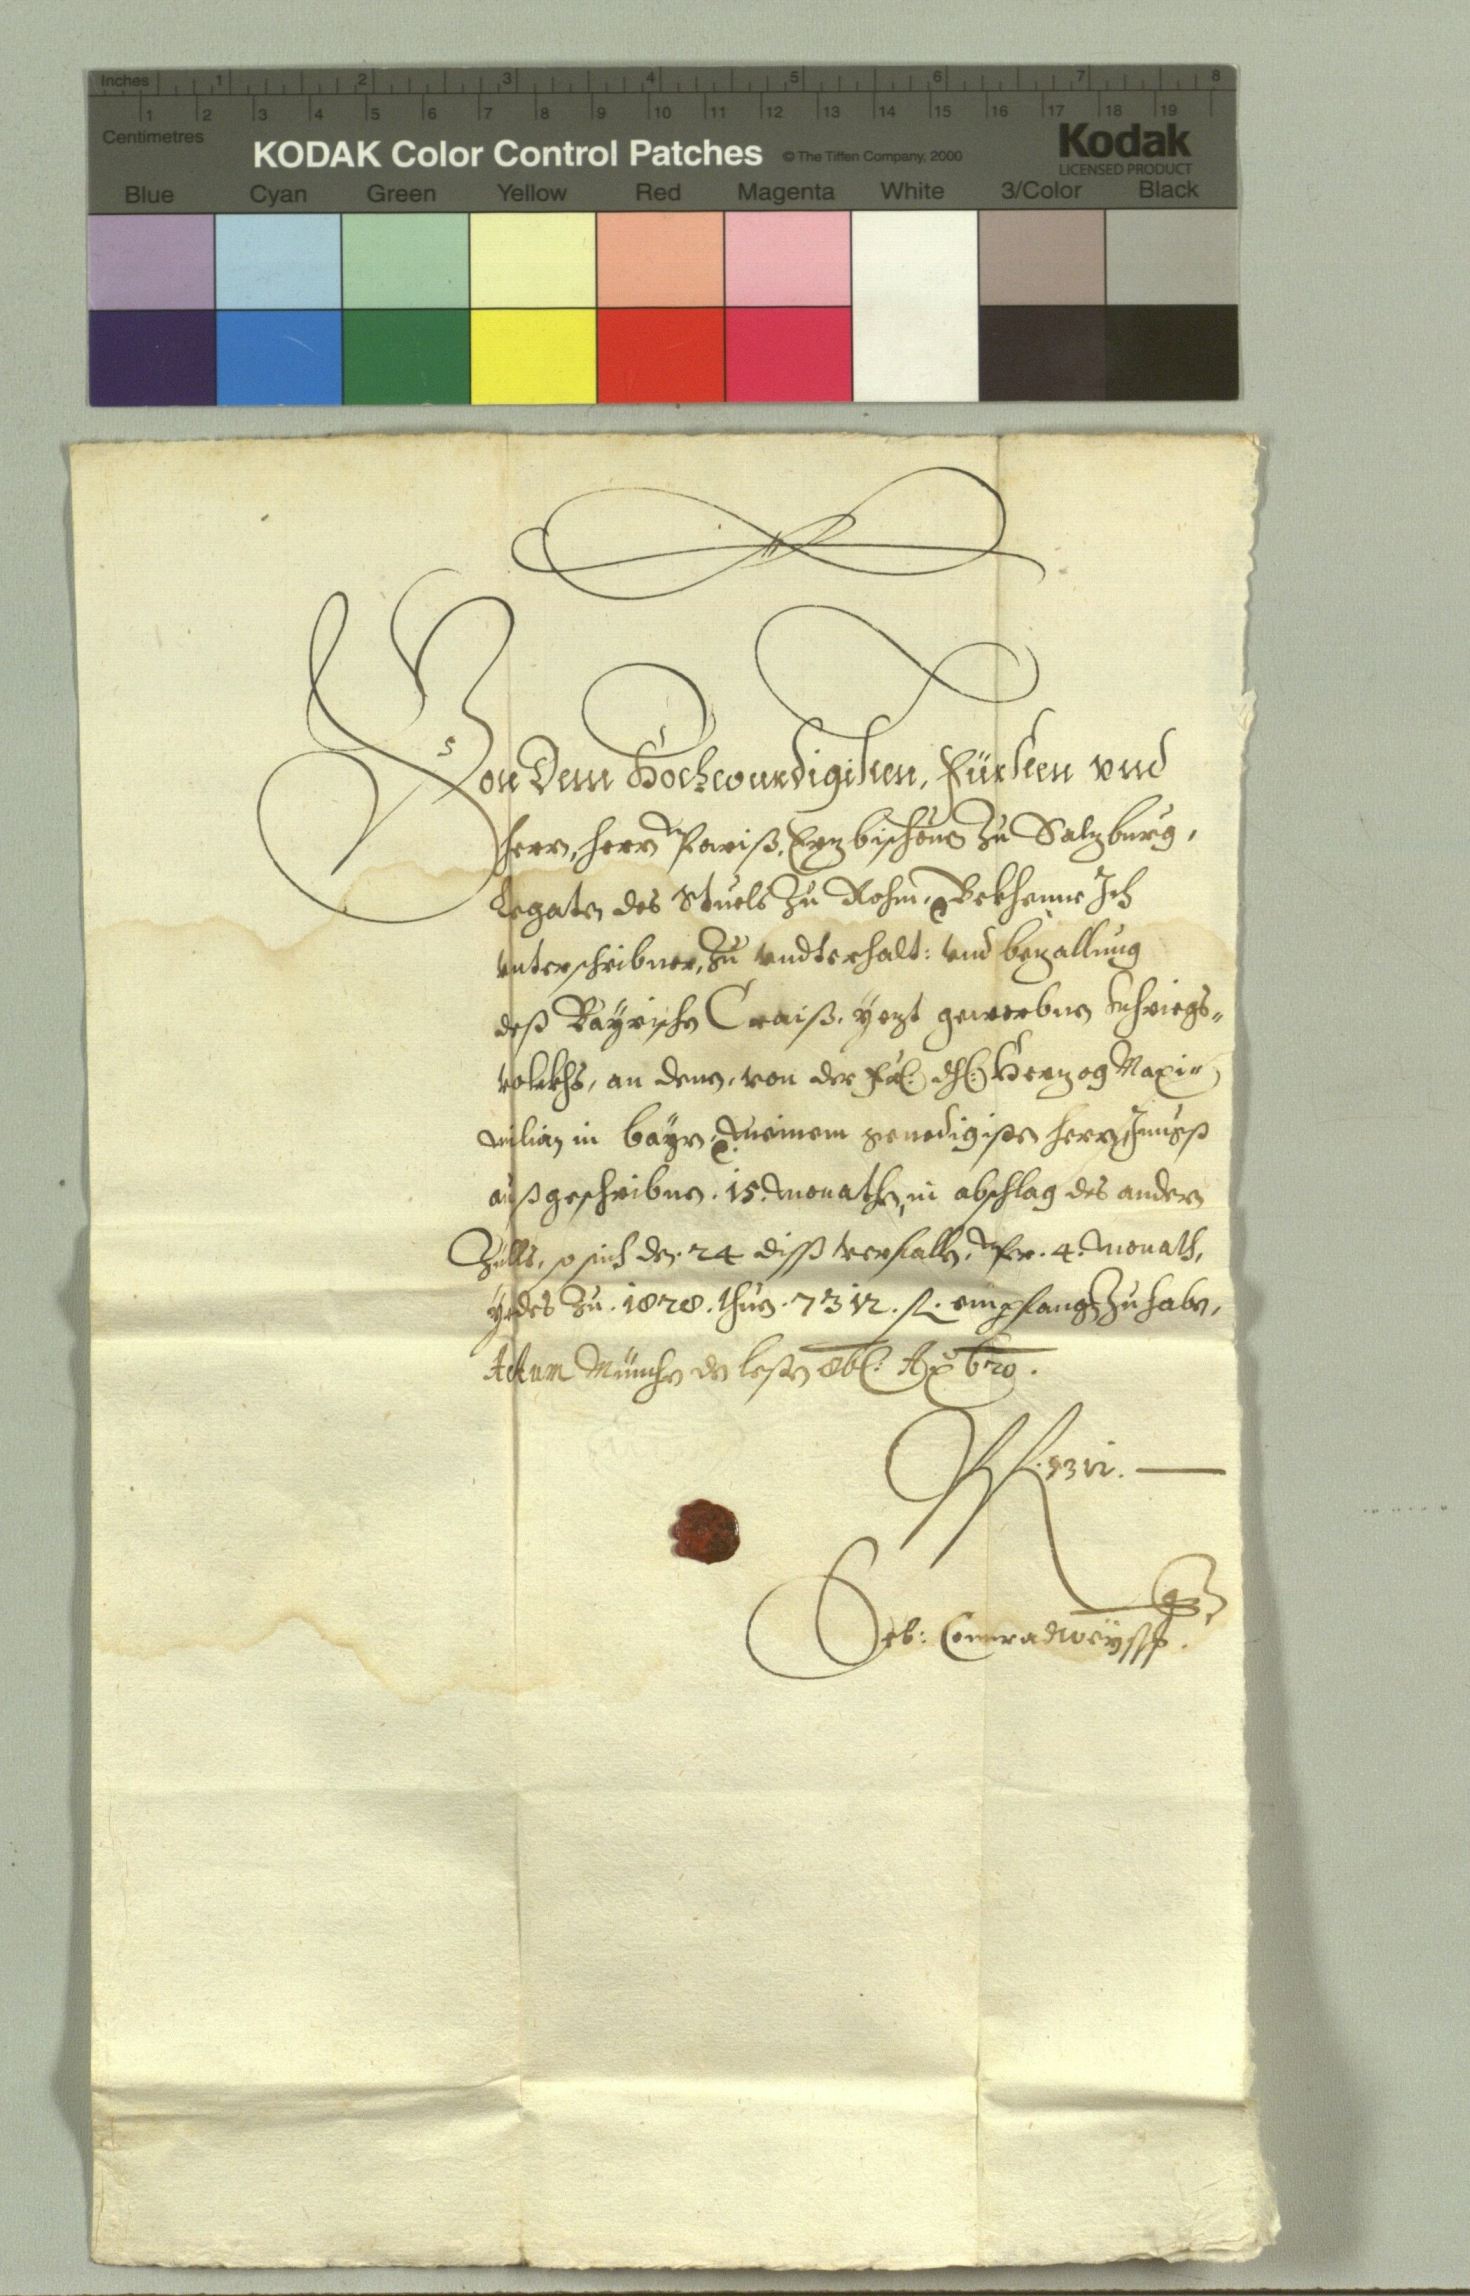 Inches 1 2 3 4 5 6 7 8
1 2 3 4 5 6 7 8 9 10 11 12 13 14 15 16 17 18 19
Centimetres
KODAK Color Control Patches © The Tiffen Company, 2000 Kodak
LICENSED PRODUCT
Blue Cyan Green Yellow Red Magenta White 3/Color Black
Von Dem Hochwurdigisten, Fürsten vnd
Herrn, Herrn Pariß, Erzbischoue zu Salzburg,
Legaten des Stuels zu Rohm, Bekhenne Ich
vnterschribner, zu vndterhalt: vnd bezallung
deß Bayrischen Craiß, yezt geworbnen Khriegs„
volckhs, an denen, von der Herzog Maxi„
milian in bayrn, meinem genedigisten Herrn
außgeschribnen .15. Monathen, in abschlag des andern
Zülls, so sich den .24 diß verfallen, per .4. Monath,
yedes zu .1828. thuen .7312. fl. empfangen zu haben,
Actum München den lesten
fl. 7312.
Seb: Conradweyss